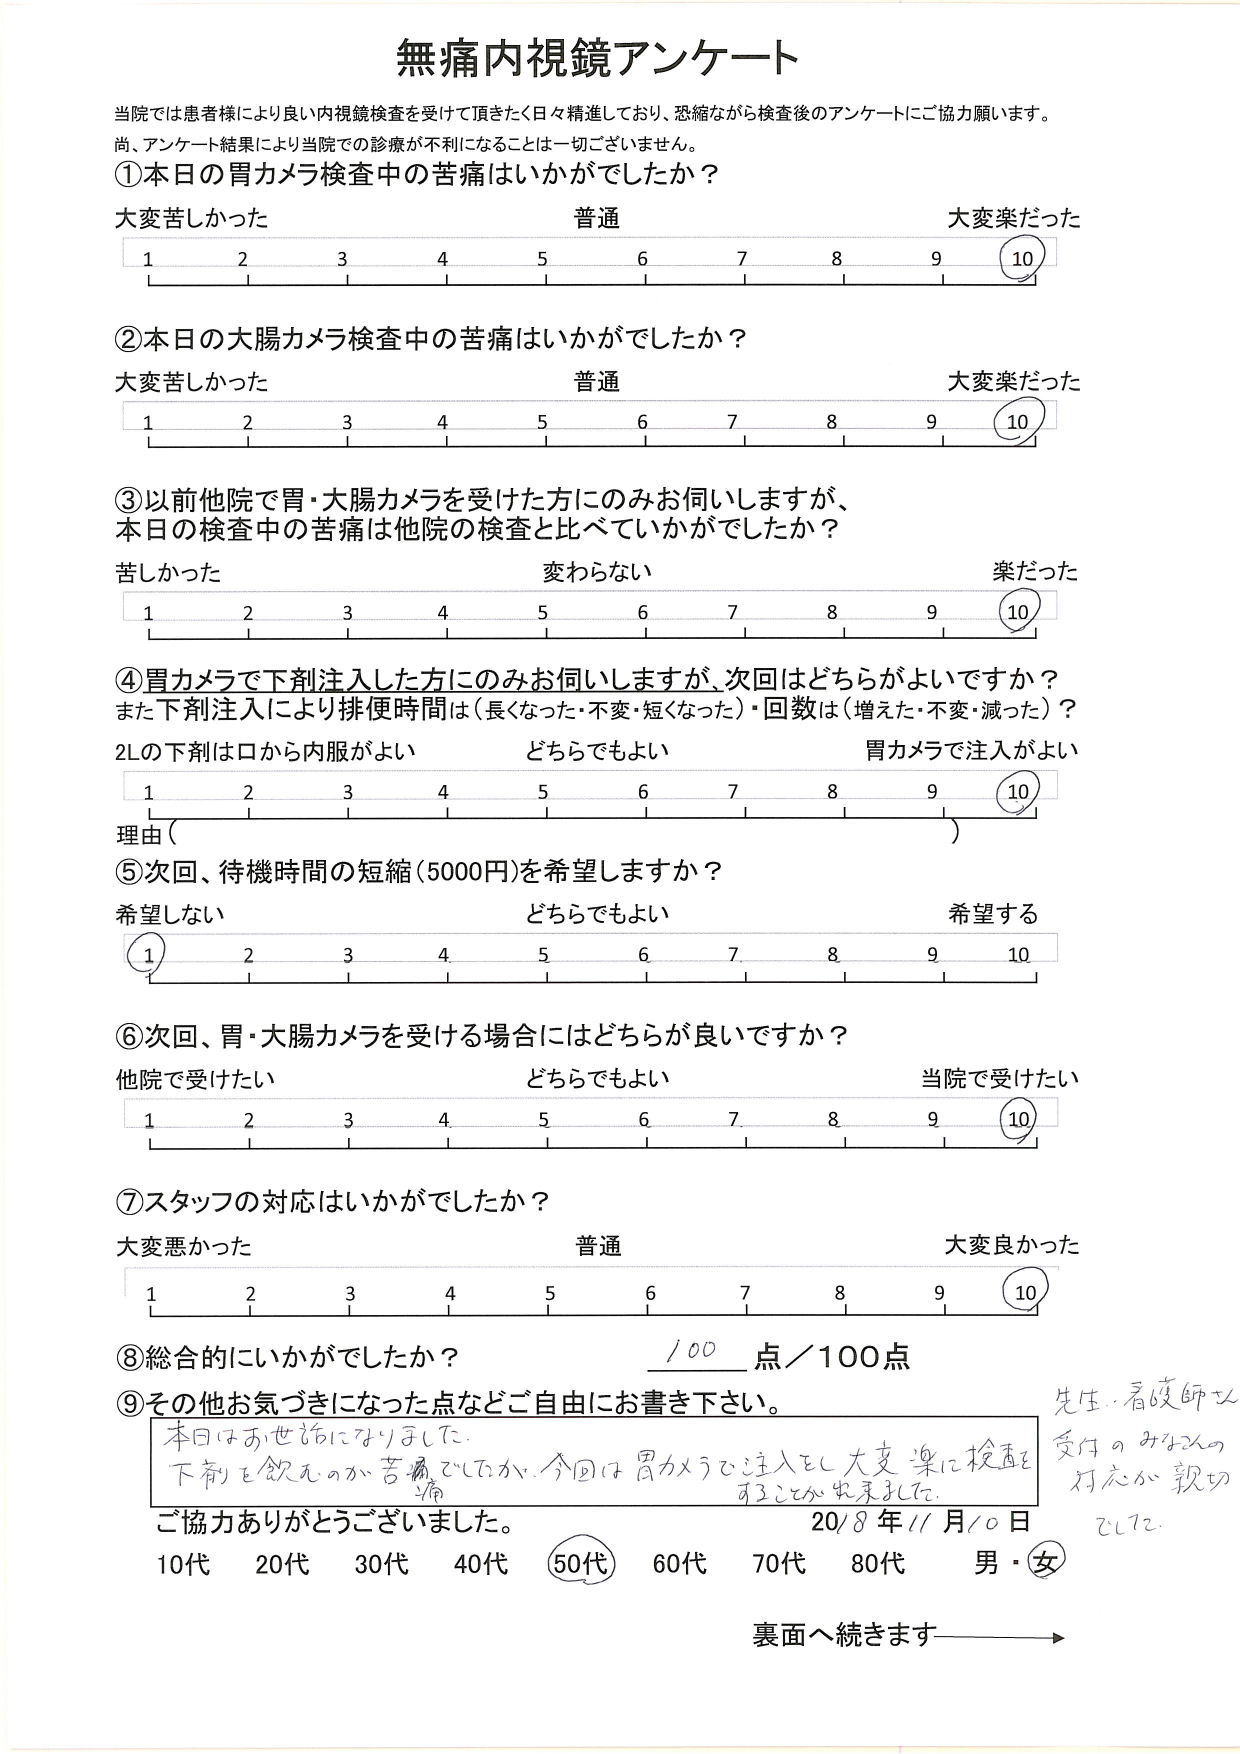 無痛内視鏡アンケート
当院では患者様により良い内視鏡検査を受けて頂きたく日々精進しており、恐縮ながら検査後のアンケートにご協力願います。
尚、アンケート結果により当院での診療が不利になることは一切ございません。
①本日の胃カメラ検査中の苦痛はいかがでしたか？
大変苦しかった 普通 大変楽だった
1 2 3 4 5 6 7 8 9 10
②本日の大腸カメラ検査中の苦痛はいかがでしたか？
大変苦しかった 普通 大変楽だった
1 2 3 4 5 6 7 8 9 10
③以前他院で胃・大腸カメラを受けた方にのみお伺いしますが、
本日の検査中の苦痛は他院の検査と比べていかがでしたか？
苦しかった 変わらない 楽だった
1 2 3 4 5 6 7 8 9 10
④胃カメラで下剤注入した方にのみお伺いしますが、次回はどちらがよいですか？
また下剤注入により排便時間は（長くなった・不変・短くなった）・回数は（増えた・不変・減った）？
2Lの下剤は口から内服がよい どちらでもよい 胃カメラで注入がよい
1 2 3 4 5 6 7 8 9 10
理由（ ）
⑤次回、待機時間の短縮（5000円）を希望しますか？
希望しない どちらでもよい 希望する
1 2 3 4 5 6 7 8 9 10
⑥次回、胃・大腸カメラを受ける場合にはどちらが良いですか？
他院で受けたい どちらでもよい 当院で受けたい
1 2 3 4 5 6 7 8 9 10
⑦スタッフの対応はいかがでしたか？
大変悪かった 普通 大変良かった
1 2 3 4 5 6 7 8 9 10
⑧総合的にいかがでしたか？ 100 点／100点
⑨その他お気づきになった点などご自由にお書き下さい。
本日はお世話になりました。
下剤を飲むのが苦痛でしたが、今回は胃カメラで注入をし大変楽に検査を
痛 することが出来ました。
先生、看護師さん
受付のみなさんの
対応が親切
でした。
ご協力ありがとうございました。 2018年11月10日
10代 20代 30代 40代 50代 60代 70代 80代 男・女
裏面へ続きます